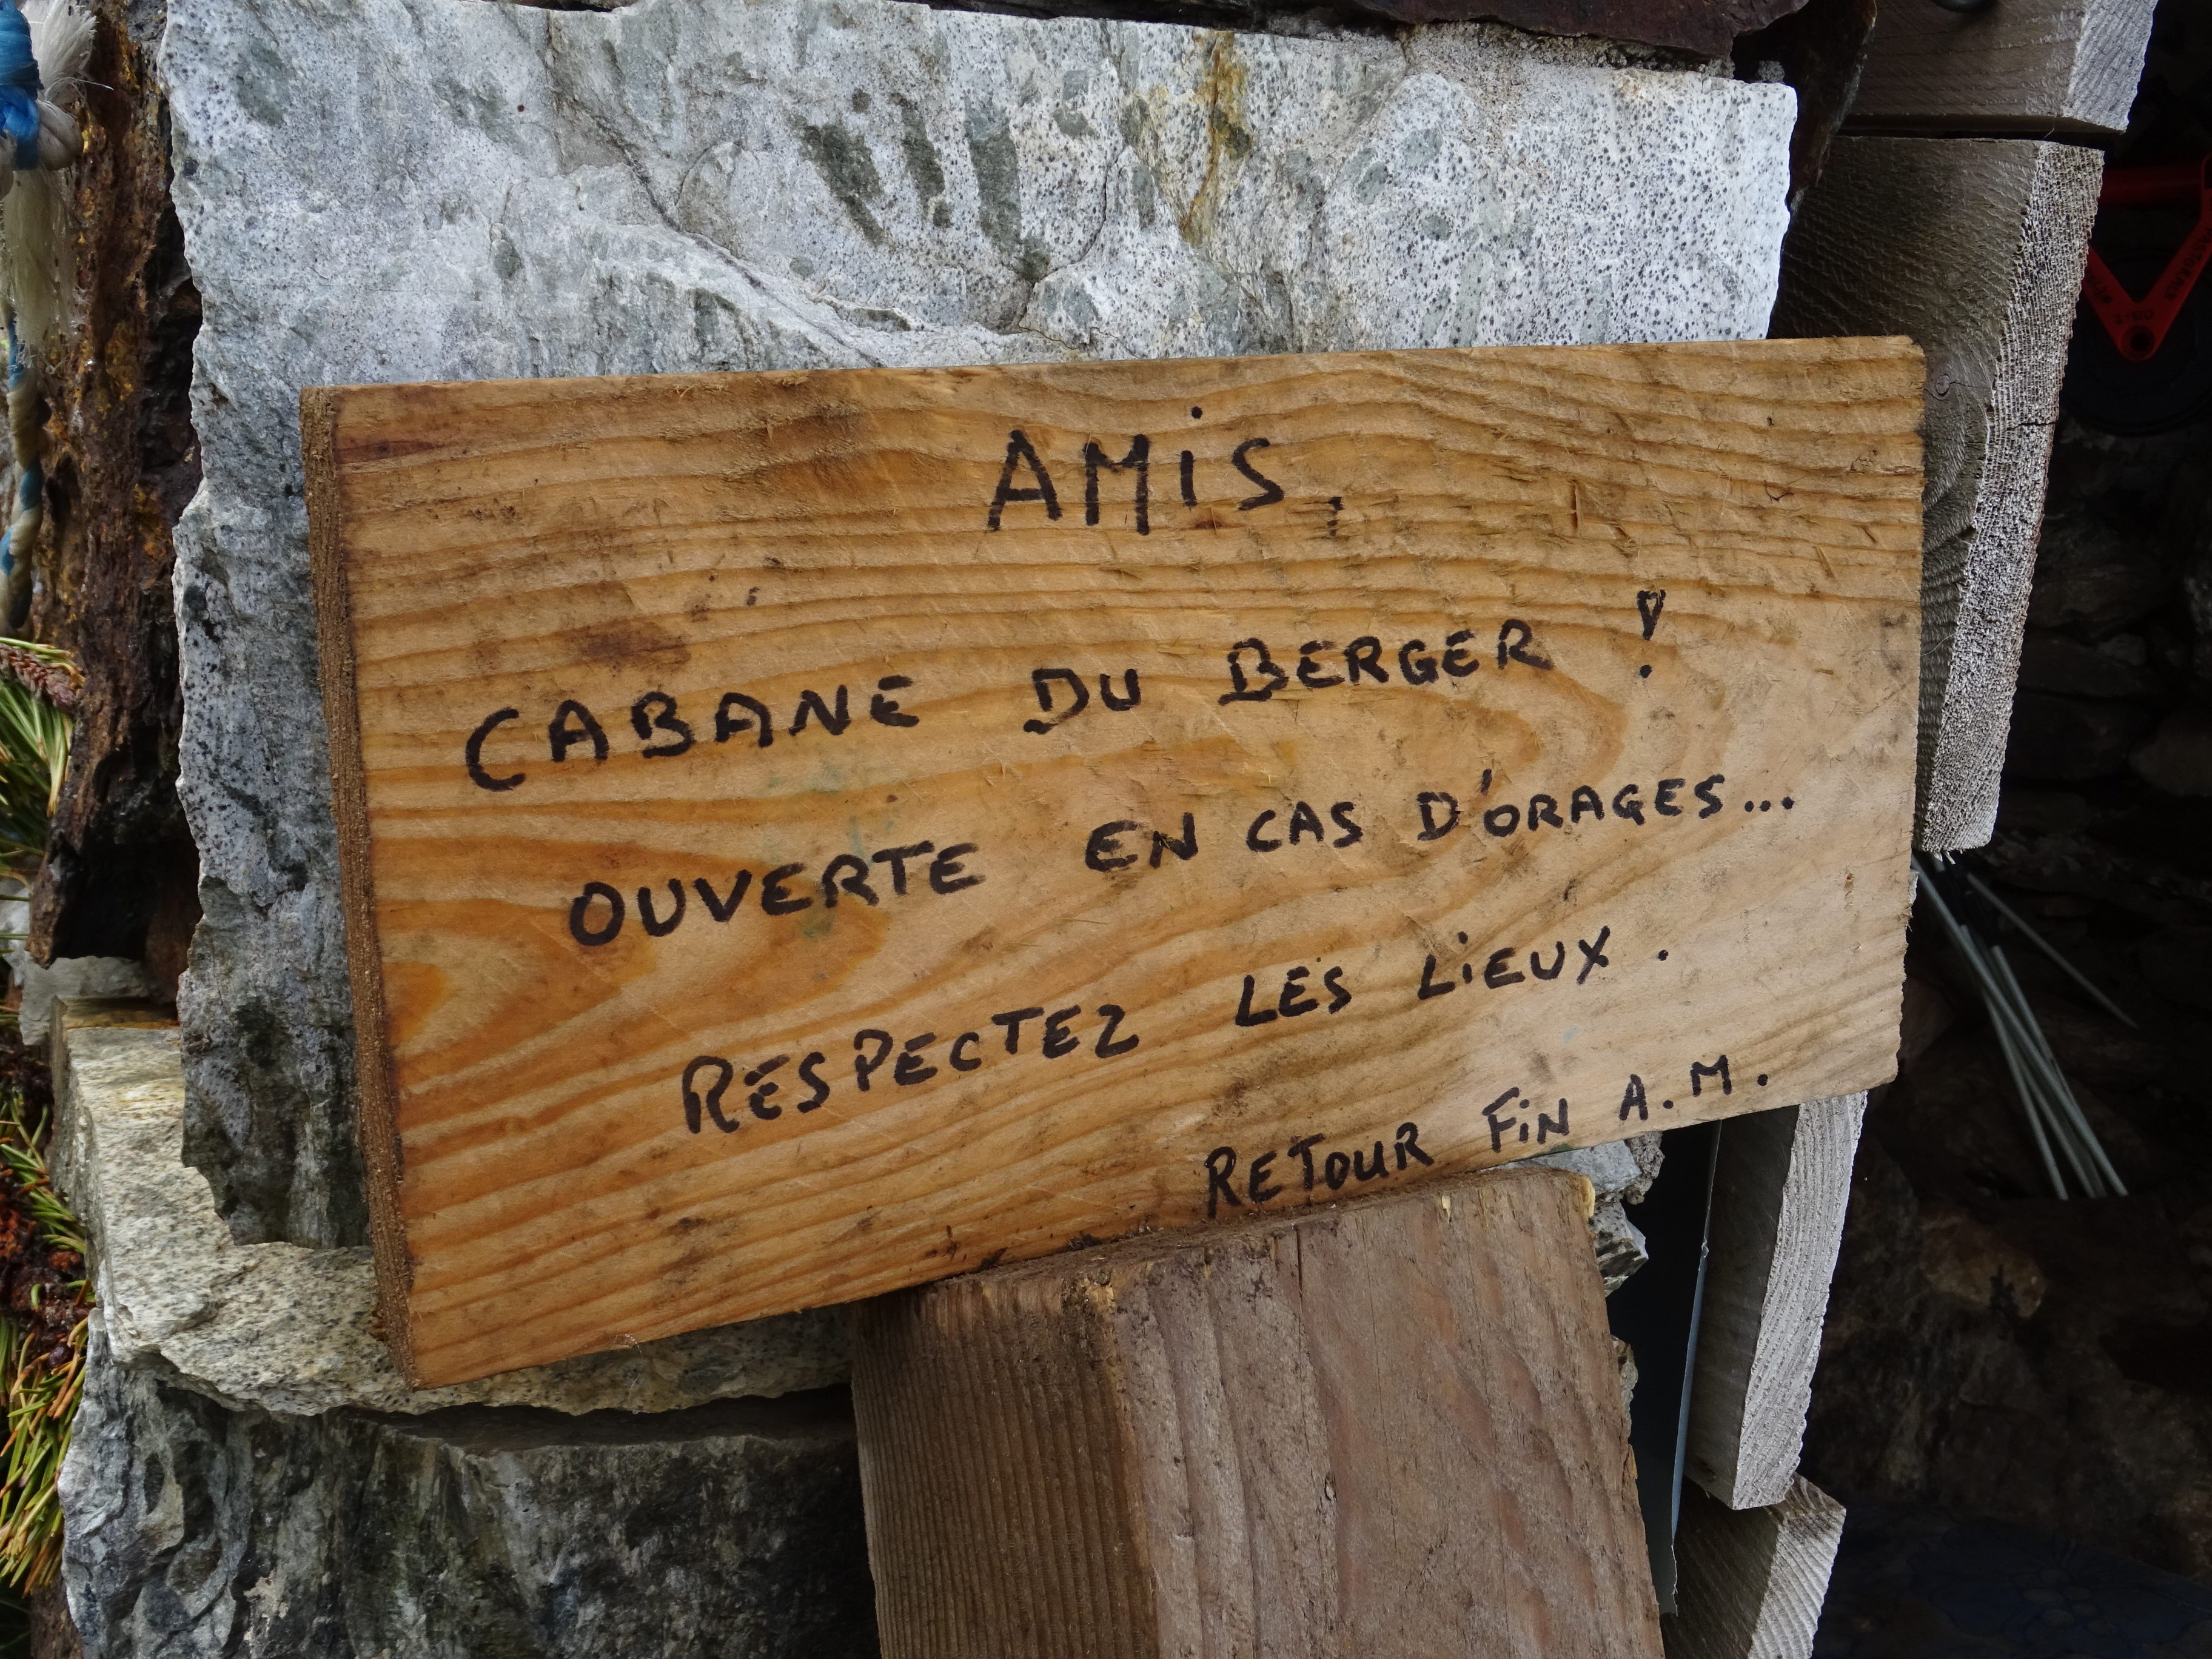 AMiS,
CABANE DU BERGER !
OUVERTE EN CAS D'ORAGES...
RESPECTEZ LES LiEUX.
RETOUR FiN A.M.